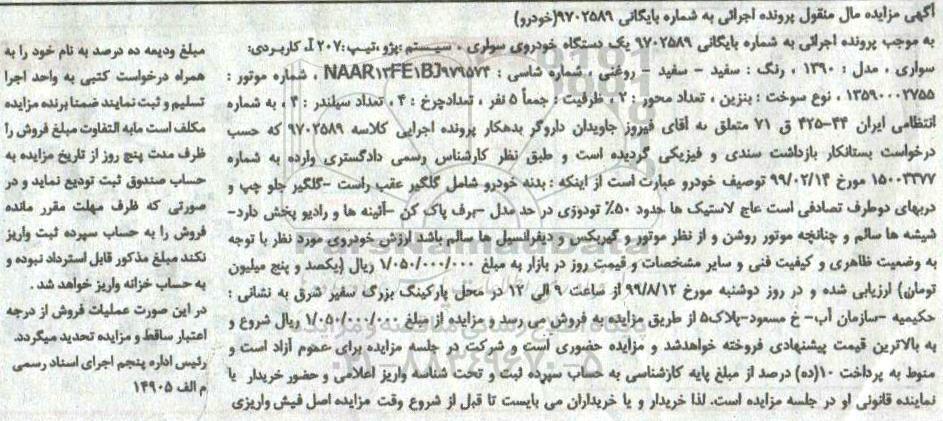 آگهی مزایده مال منقول پرونده اجرائی به شماره بایگانی ۹۷۰۲۵۸۹(خودرو)
به موجب پرونده اجرائی به شماره بایگانی ۹۷۰۲۵۸۹ یک دستگاه خودروی سواری ، سیستم:پژو،تیپ:۲۰۷ آ، کاربردی:
سواری ، مدل : ۱۳۹۰ ، رنگ : سفید – سفید – روغنی ، شماره شاسی : NAAR۱۳FE۱BJ۹۷۹۵۷۴ ، شماره موتور :
۱۳۵۹۰۰۰۲۷۵۵ ، نوع سوخت : بنزین ، تعداد محور : ۲ ، ظرفیت : جمعاً ۵ نفر ، تعدادچرخ : ۴ ، تعداد سیلندر : ۴ ، به شماره
انتظامی ایران ۴۴-۴۲۵ ق ۷۱ متعلق به آقای فیروز جاویدان داروگر بدهکار پرونده اجرایی کلاسه ۹۷۰۲۵۸۹ که حسب
درخواست بستانکار بازداشت سندی و فیزیکی گردیده است و طبق نظر کارشناس رسمی دادگستری وارده به شماره
۱۵۰۰۳۳۷۷ مورخ ۹۹/۰۲/۱۴ توصیف خودرو عبارت است از اینکه : بدنه خودرو شامل گلگیر عقب راست -گلگیر جلو چپ و
دربهای دوطرف تصادفی است عاج لاستیک ها حدود ۵۰٪ تودوزی در حد مدل -برف پاک کن -آئینه ها و رادیو پخش دارد-
شیشه ها سالم و چنانچه موتور روشن و از نظر موتور و گیربکس و دیفرانسیل ها سالم باشد ارزش خودروی مورد نظر با توجه
به وضعیت ظاهری و کیفیت فنی و سایر مشخصات و قیمت روز در بازار به مبلغ ۱/۰۵۰/۰۰۰/۰۰۰ ریال (یکصد و پنج میلیون
تومان) ارزیابی شده و در روز دوشنبه مورخ ۹۹/۸/۱۲ از ساعت ۹ الی ۱۲ در محل پارکینگ بزرگ سفیر شرق به نشانی :
حکیمیه -سازمان آب- خ مسعود-پلاک۵ از طریق مزایده به فروش می رسد و مزایده از مبلغ ۱/۰۵۰/۰۰۰/۰۰۰ ریال شروع و
به بالاترین قیمت پیشنهادی فروخته خواهدشد و مزایده حضوری است و شرکت در جلسه مزایده برای عموم آزاد است و
منوط به پرداخت ۱۰(ده) درصد از مبلغ پایه کارشناسی به حساب سپرده ثبت و تحت شناسه واریز اعلامی و حضور خریدار یا
نماینده قانونی او در جلسه مزایده است. لذا خریدار و یا خریداران می بایست تا قبل از شروع وقت مزایده اصل فیش واریزی
مبلغ ودیعه ده درصد به نام خود را به
همراه درخواست کتبی به واحد اجرا
تسلیم و ثبت نمایند ضمنا برنده مزایده
مکلف است مابه التفاوت مبلغ فروش را
ظرف مدت پنج روز از تاریخ مزایده به
حساب صندوق ثبت تودیع نماید و در
صورتی که ظرف مهلت مقرر مانده
فروش را به حساب سپرده ثبت واریز
نکند مبلغ مذکور قابل استرداد نبوده و
به حساب خزانه واریز خواهد شد .
در این صورت عملیات فروش از درجه
اعتبار ساقط و مزایده تجدید میگردد.
رئیس اداره پنجم اجرای اسناد رسمی
م الف ۱۴۹۰۵